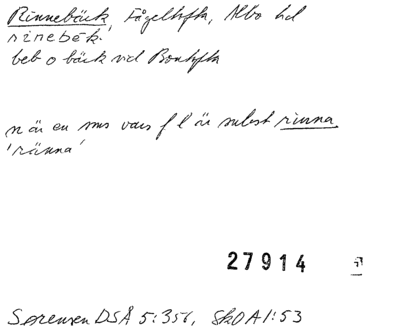 Rinnebäck, Fågeltofta, Albo hd
rinebék.
beb o bäck vid Bontofta
n är en sms vars f l är subst rinna
'ränna'
27914
Sørensen DSÅ 5:351, SkO A1:53